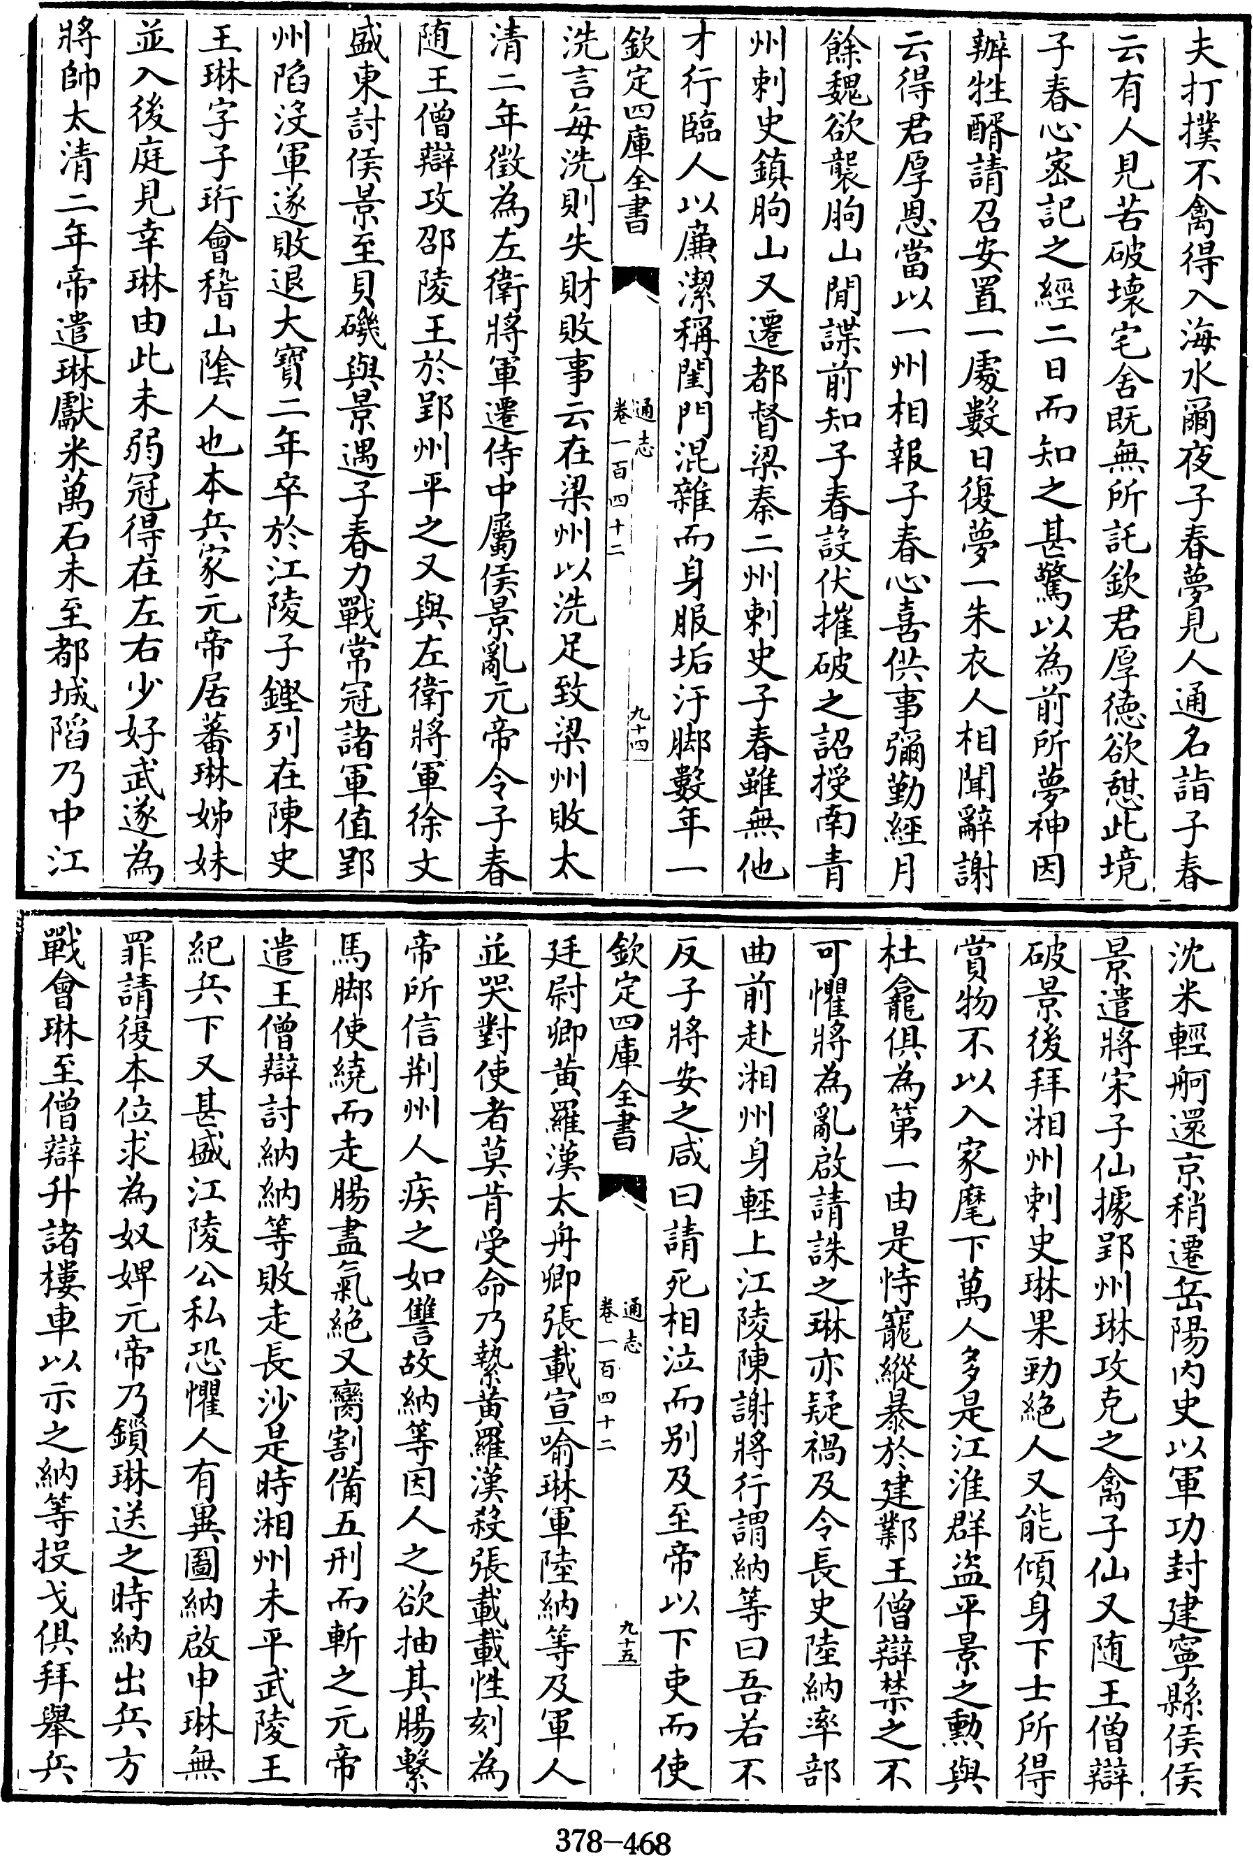 夫打撲不禽得入海水爾夜子春夢見人通名詣子春
云有人見苦破壞宅舍既無所託欽君厚德欲憇此境
子春心密記之經二日而知之甚驚以為前所夢神因
辦牲醑請召安置一處數日復夢一朱衣人相聞辭謝
云得君厚恩當以一州相報子春心喜供事彌勤經月
餘魏欲襲朐山間諜前知子春設伏摧破之詔授南青
州刺史鎮朐山又遷都督梁秦二州刺史子春雖無他
才行臨人以廉潔稱閨門混雜而身服垢汙脚數年一
欽定四庫全書
通志
卷一百四十二
九十四
洗言每洗則失財敗事云在梁州以洗足致梁州敗太
清二年徵為左衛將軍遷侍中屬侯景亂元帝令子春
随王僧辯攻邵陵王於郢州平之又與左衛將軍徐文
盛東討侯景至貝磯與景遇子春力戰常冠諸軍值郢
州陷沒軍遂敗退大寶二年卒於江陵子鏗列在陳史
王琳字子珩會稽山陰人也本兵家元帝居蕃琳姊妹
並入後庭見幸琳由此未弱冠得在左右少好武遂為
將帥太清二年帝遣琳獻米萬石未至都城陷乃中江
沈米輕舸還京稍遷岳陽內史以軍功封建寧縣侯侯
景遣將宋子仙據郢州琳攻克之禽子仙又随王僧辯
破景後拜湘州刺史琳果勁絶人又能傾身下士所得
賞物不以入家麾下萬人多是江淮群盜平景之勲與
杜龕俱為第一由是恃寵縱暴於建鄴王僧辯禁之不
可懼將為亂啟請誅之琳亦疑禍及令長史陸納率部
曲前赴湘州身輕上江陵陳謝將行謂納等曰吾若不
反子將安之咸曰請死相泣而别及至帝以下吏而使
欽定四庫全書
通志
卷一百四十二
九十五
廷尉卿黄羅漢太舟卿張載宣喻琳軍陸納等及軍人
並哭對使者莫肯受命乃縶黄羅漢殺張載載性刻為
帝所信荆州人疾之如讐故納等因人之欲抽其腸繫
馬脚使繞而走腸盡氣絶又臠割備五刑而斬之元帝
遣王僧辯討納納等敗走長沙是時湘州未平武陵王
紀兵下又甚盛江陵公私恐懼人有異圖納啟申琳無
罪請復本位求為奴婢元帝乃鎖琳送之時納出兵方
戰會琳至僧辯升諸樓車以示之納等投戈俱拜舉兵
378-468